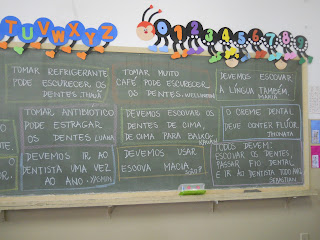 T U V W X Y Z
0 1 2 3 4 5 6 7 8
TOMAR REFRIGERANTE
PODE ESCURECER OS
DENTES.
TOMAR MUITO
CAFÉ PODE ESCURECER
OS DENTES.
DEVEMOS ESCOVAR
A LÍNGUA TAMBÉM.
MARIA
TOMAR ANTIBIÓTICO
PODE ESTRAGAR
OS DENTES LUANA
DEVEMOS ESCOVAR OS
DENTES DE CIMA,
DE CIMA PARA BAIXO.
O CREME DENTAL
DEVE CONTER FLÚOR.
DEVEMOS IR AO
DENTISTA UMA VEZ
AO ANO. YASMIN
DEVEMOS USAR
ESCOVA MACIA.
JOÃO
TODOS DEVEM:
ESCOVAR OS DENTES,
PASSAR FIO DENTAL
E IR AO DENTISTA TODO ANO.
SEBASTIAN